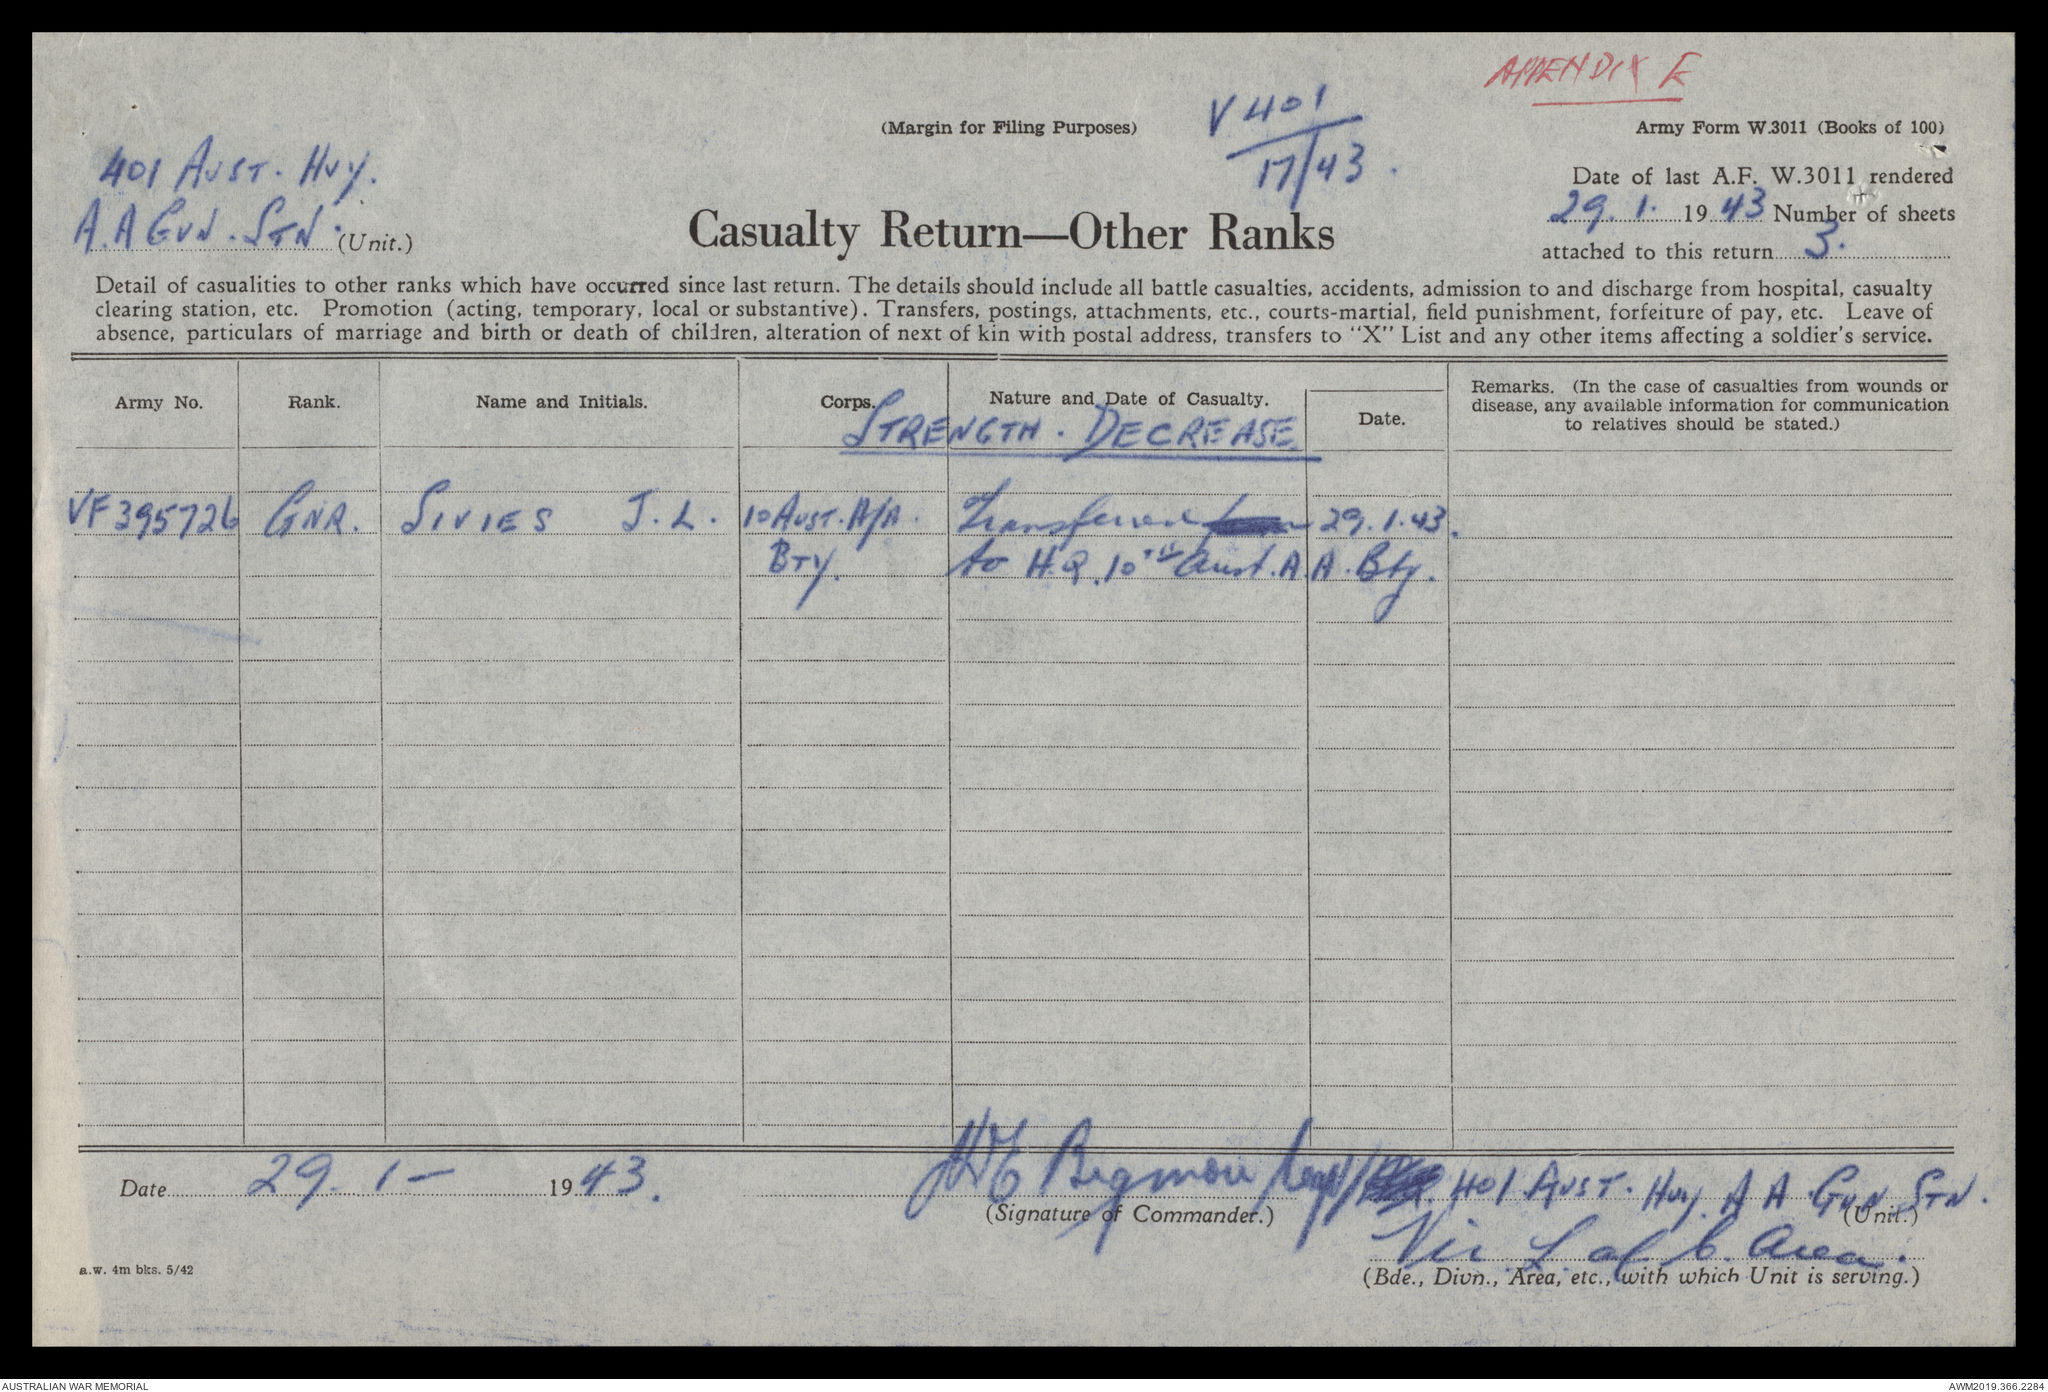 APPENDIX E
(Margin for Filing Purposes)
V 401
17/43.
Army Form W.3011 (Books of 100)
401 AUST. HVY.
A.A GUN. STN. (Unit.)
Casualty Return—Other Ranks
Date of last A.F. W.3011 rendered
29. 1. 1943 Number of sheets
attached to this return 3.
Detail of casualities to other ranks which have occurred since last return. The details should include all battle casualties, accidents, admission to and discharge from hospital, casualty
clearing station, etc. Promotion (acting, temporary, local or substantive). Transfers, postings, attachments, etc., courts-martial, field punishment, forfeiture of pay, etc. Leave of
absence, particulars of marriage and birth or death of children, alteration of next of kin with postal address, transfers to "X" List and any other items affecting a soldier's service.
Army No. Rank. Name and Initials. Corps. Nature and Date of Casualty. Date. Remarks. (In the case of casualties from wounds or
disease, any available information for communication
to relatives should be stated.)
STRENGTH. DECREASE
VF395726 GNR. SIVIES J. L. 10 AUST. A/A. Transferred 29.1.43.
BTY. to H.Q. 10TH Aust. A.A. Bty.
Date 29. 1 - 1943. Bigmore Capt 401 AUST. Hvy. A A GUN STN.
(Signature of Commander.) (Unit.)
Vic L of C. Area.
(Bde., Divn., Area, etc., with which Unit is serving.)
a.w. 4m bks. 5/42
AUSTRALIAN WAR MEMORIAL AWM2019.366.2284